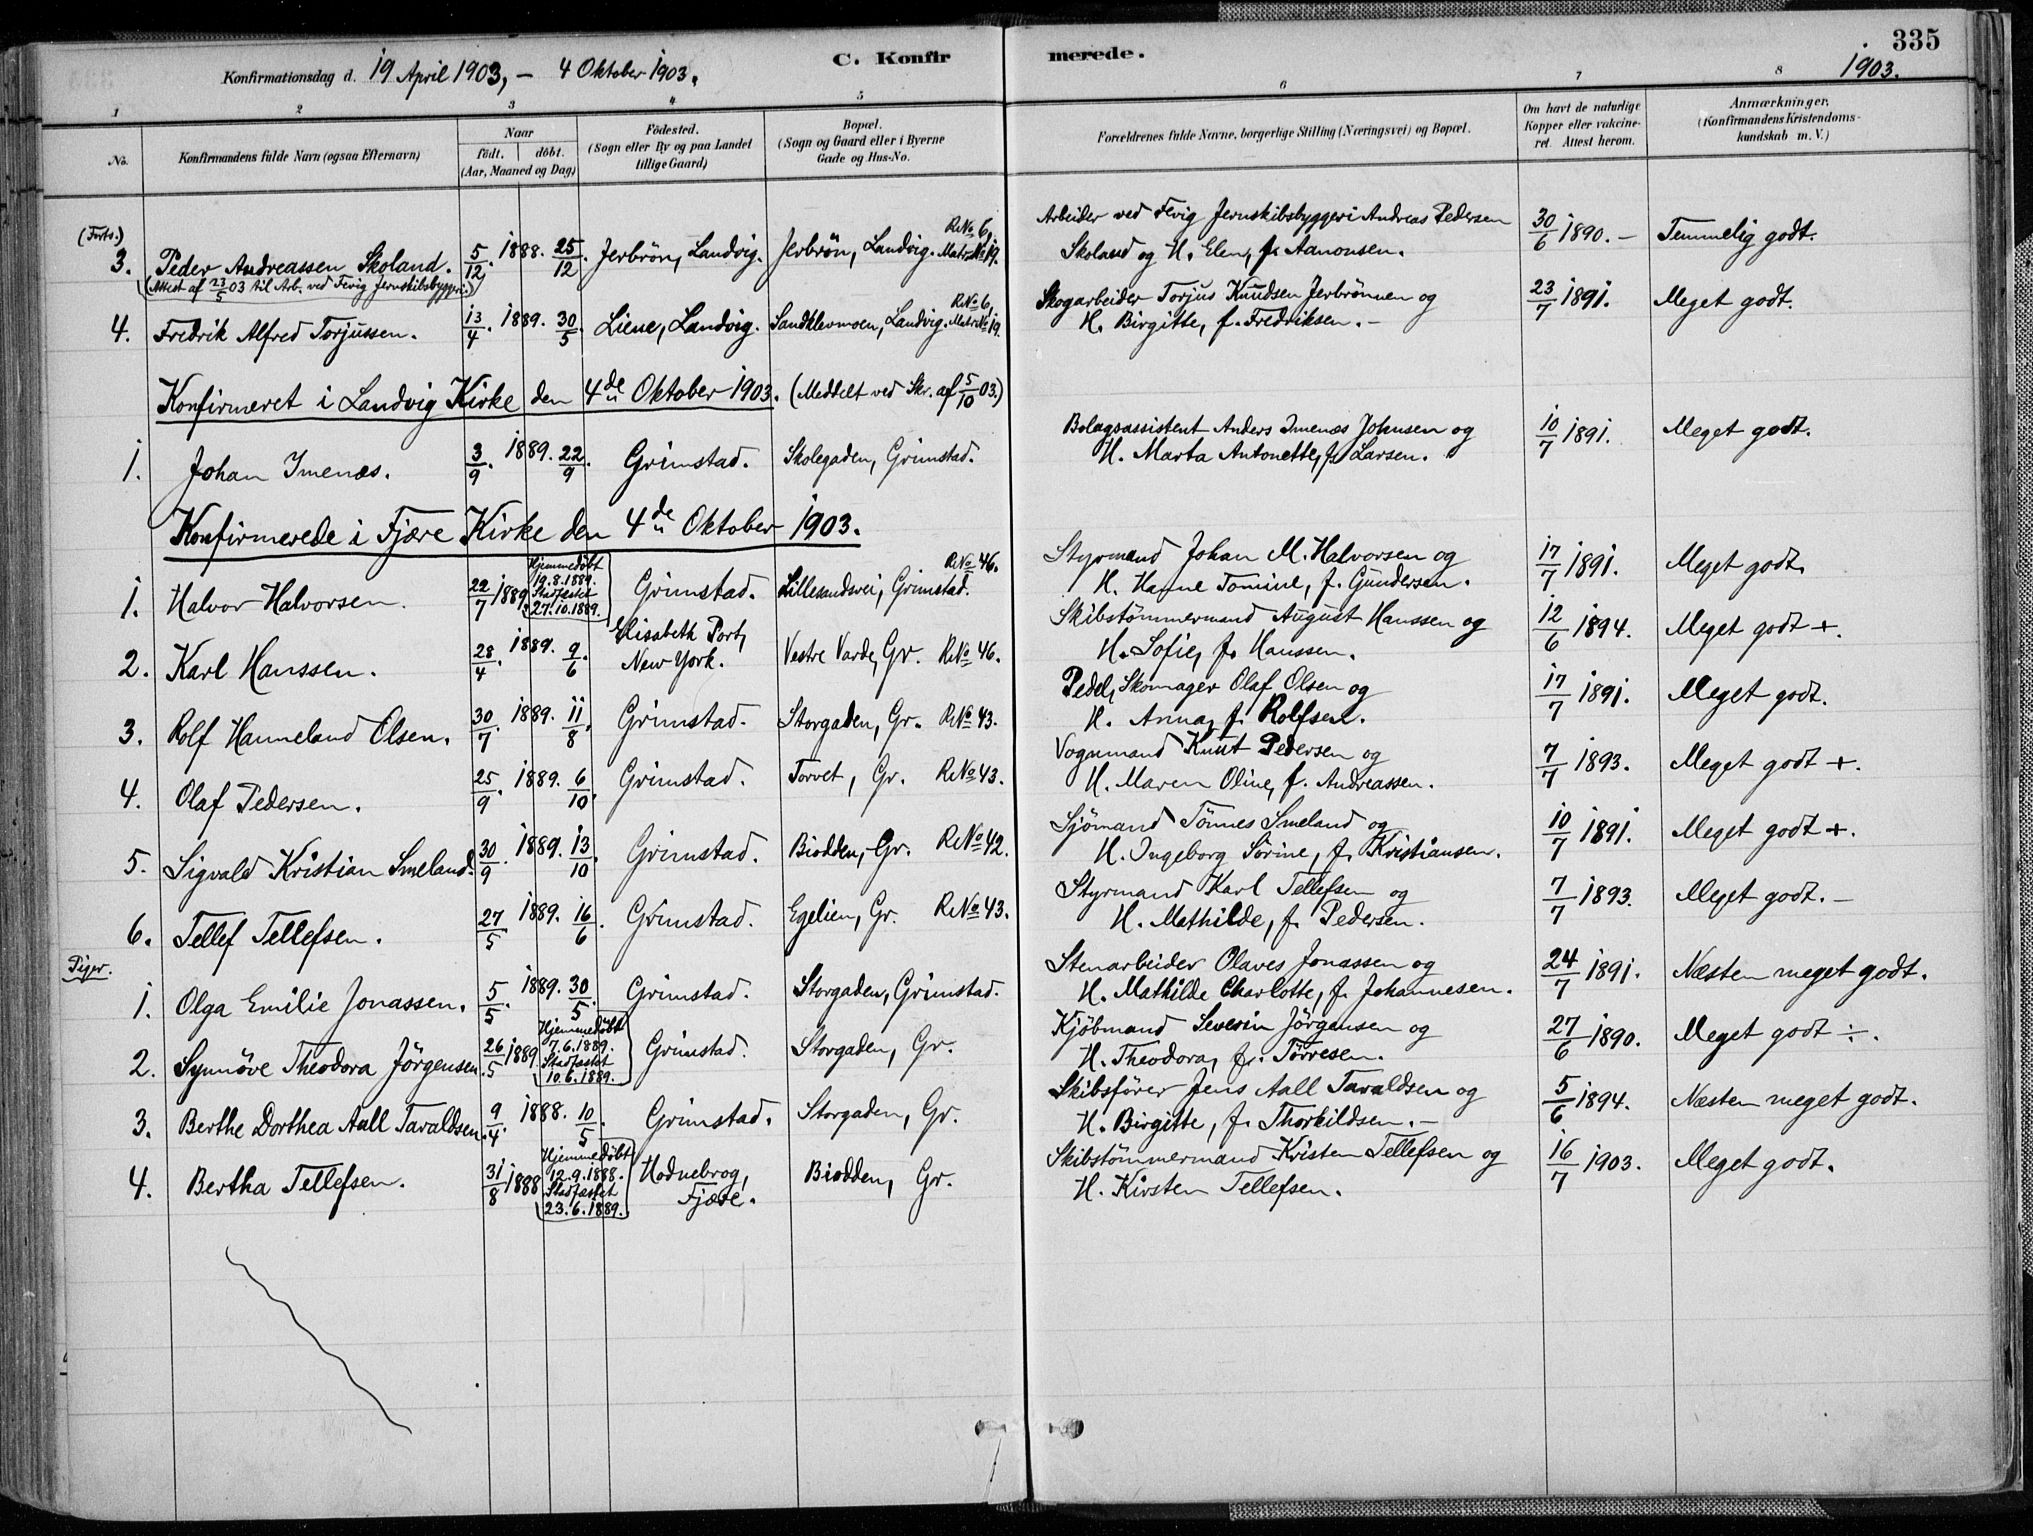 335
Konfirmationsdag d. 19 April 1903, - 4 Oktober 1903.
C. Konfirmerede.
1903.
1 2 3 4 5 6 7 8
No.
Konfirmandens fulde Navn (ogsaa Efternavn)
Naar
født. døbt.
(Aar, Maaned og Dag)
Fødested.
(Sogn eller By og paa Landet
tillige Gaard)
Bopæl.
(Sogn og Gaard eller i Byerne
Gade og Hus-No.
Forældrenes fulde Navne, borgerlige Stilling (Næringsvei) og Bopæl.
Om havt de naturlige
Kopper eller vakcine-
ret. Attest herom.
Anmærkninger.
(Konfirmandens Kristendoms-
kundskab m. V.)
(Forts.)
3. Peder Andreassen Skoland. 5/12. 1888. 25/12. Jerbrön, Landvig. Jerbrön, Landvig. R.No 6, Matr.No 19. Arbeider ved Fevig Jernskibsbyggeri Andreas Pedersen 30/6 1890. - Temmelig godt.
Skoland og H. Elen, f. Aanonsen.
(Attest af 23/5 03 til Arb. ved Fevig Jernskibsbyggeri.)
4. Fredrik Alfred Torjussen. 13/4. 1889. 30/5. Liene, Landvig. Sandklevmoen, Landvig. R.No 6, Matr.No 19. Skogarbeider Torjus Knudsen Jerbrönnen og 23/7 1891. Meget godt.
H. Birgitte, f. Fredriksen. -
Konfirmeret i Landvig Kirke den 4de Oktober 1903. (Meddelt ved Skr. af 5/10 03.)
1. Johan Imenæs. 3/9. 1889. 22/9. Grimstad. Skolegaden, Grimstad. Bolagsassistent Anders Imenæs Johnsen og 10/7 1891. Meget godt.
H. Marta Antonette, f. Larsen.
Konfirmerede i Fjære Kirke den 4de Oktober 1903.
1. Halvor Halvorsen. 22/7 1889 Hjemmedöbt 19.8.1889. Stadfæstet 27.10.1889. Grimstad. Lillesandsvei, Grimstad. R.No 46. Styrmand Johan M. Halvorsen og 17/7 1891. Meget godt.
H. Hanne Tomine, f. Gundersen.
2. Karl Hanssen. 28/4. 1889. 9/6. Elisabeth Port, New York. Vestre Varde, Gr. R.No 46. Skibstömmermand August Hanssen og 12/6 1894. Meget godt +.
H. Sofie, f. Hanssen.
3. Rolf Hanneland Olsen. 30/7. 1889. 11/8. Grimstad. Storgaden, Gr. R.No 43. Pedel, Skomager Olaf Olsen og 17/7 1891. Meget godt.
H. Anna, f. Rolfsen.
4. Olaf Pedersen. 25/9. 1889. 6/10. Grimstad. Torvet, Gr. R.No 43. Vognmand Knut Pedersen og 7/7 1893. Meget godt +.
H. Maren Oline, f. Andreassen.
5. Sigvald Kristian Smeland. 30/9. 1889. 13/10. Grimstad. Biodden, Gr. R.No 42. Sjömand Tönnes Smeland og 10/7 1891. Meget godt +.
H. Ingeborg Sörine, f. Kristiansen.
6. Tellef Tellefsen. 27/5. 1889. 16/6. Grimstad. Egelien, Gr. R.No 43. Styrmand Karl Tellefsen og 7/7 1893. Meget godt. -
H. Mathilde, f. Pedersen.
Piger.
1. Olga Emilie Jonassen. 5/5. 1889. 30/5. Grimstad. Storgaden, Grimstad. Stenarbeider Olaves Jonassen og 24/7 1891. Næsten meget godt.
H. Mathilde Charlotte, f. Johannesen.
2. Synnöve Theodora Jörgensen. 26/5 1889 Hjemmedöbt 7.6.1889. Stadfæstet 10.6.1889. Grimstad. Storgaden, Gr. Kjöbmand Severin Jörgensen og 27/6 1890. Meget godt ÷.
H. Theodora, f. Törresen.
3. Berthe Dorthea Aall Tavaldsen. 9/4. 1888. 10/5. Grimstad. Storgaden, Gr. Skibsförer Jens Aall Tavaldsen og 5/6 1894. Næsten meget godt.
H. Birgitte, f. Thorkildsen. -
4. Bertha Tellefsen. 31/8 1888 Hjemmedöbt 12.9.1888. Stadfæstet 23.6.1889. Hodnebrog, Fjære. Biodden, Gr. Skibstömmermand Kristen Tellefsen og 16/7 1903. Meget godt.
H. Kirsten Tellefsen.